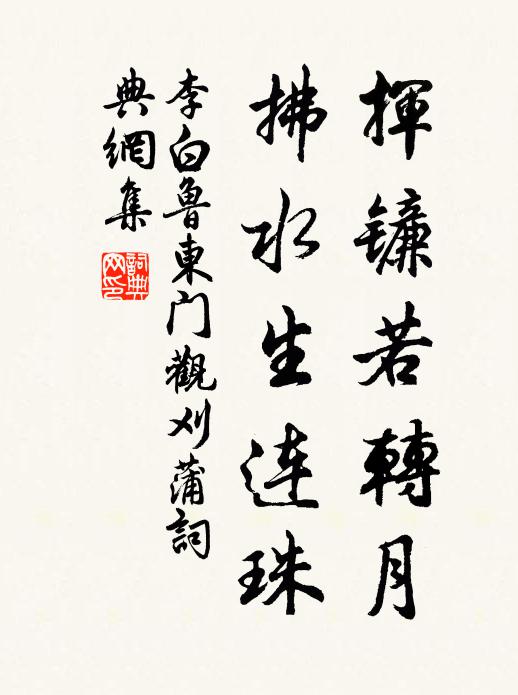 揮鐮若轉月
拂水生連珠
李白魯東門觀刈蒲詞
典網集
詞典网印